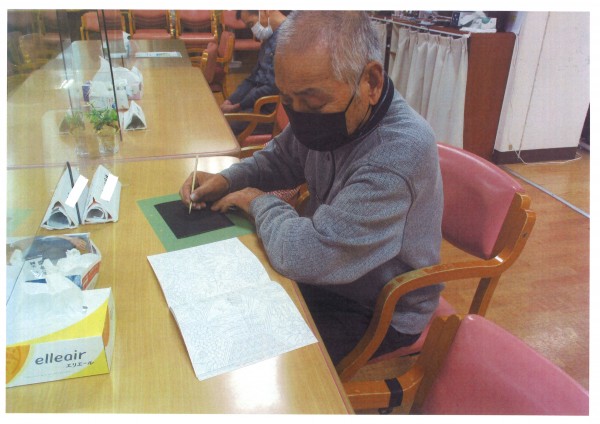 elleair
エリエール